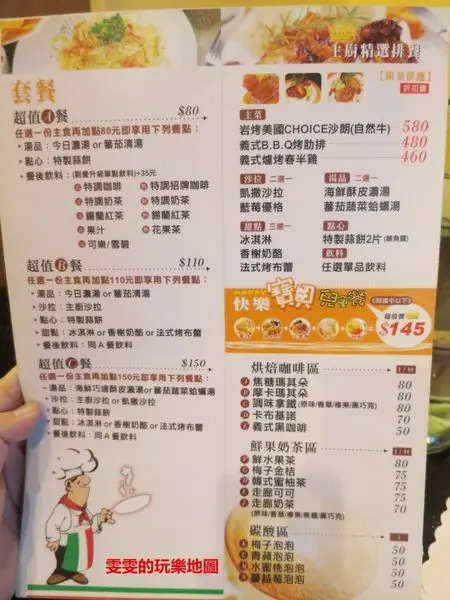 套餐
超值A餐 $80
任選一份主食再加點80元即享用下列餐點：
湯品：今日濃湯 or 蕃茄清湯
點心：特製蒜餅
餐後飲料：(副餐升級單點飲料)+35元
特調咖啡 特調招牌咖啡
特調奶茶 特調奶茶
錫蘭紅茶 錫蘭紅茶
果汁 花果茶
可樂/雪碧
超值B餐 $110
任選一份主食再加點110元即享用下列餐點：
湯品：今日濃湯 or 蕃茄清湯
沙拉：主廚沙拉
點心：特製蒜餅
甜點：冰淇淋 or 香榭奶酪 or 法式烤布蕾
餐後飲料：同A餐飲料
超值C餐 $150
任選一份主食再加點150元即享用下列餐點：
湯品：海鮮巧達酥皮濃湯or蕃茄蔬菜蛤蠣湯
沙拉：主廚沙拉 or 凱撒沙拉
點心：特製蒜餅
甜點：冰淇淋 or 香榭奶酪 or 法式烤布蕾
餐後飲料：同A餐飲料
主廚精選排餐
【限量供應】
折扣價
主菜
岩烤美國CHOICE沙朗(自然牛) 580
義式B.B.Q烤肋排 480
義式爐烤春半雞 460
沙拉 二選一 湯品 二選一
凱撒沙拉 海鮮酥皮濃湯
藍莓優格 蕃茄蔬菜蛤蠣湯
甜點 三選一 點心
冰淇淋 特製蒜餅2片
香榭奶酪 飲料
法式烤布蕾 任選單品飲料
快樂寶貝兒童餐
(限國中以下)
超值價
$145
烘焙咖啡區 I/H
A 焦糖瑪其朵 80
B 摩卡瑪其朵 80
C 調味拿鐵(原味/香草/榛果/黑巧克) 80
D 卡布基諾 70
E 義式黑咖啡 50
鮮果奶茶區 I/H
F 鮮水果茶 80
G 梅子金桔 75
H 韓式蜜柚茶 75
I 走廊可可 75
J 走廊奶茶 70
(原味/香草/榛果/焦糖/黑巧克)
碳酸區 I
K 梅子泡泡 50
L 青蘋泡泡 50
M 水蜜桃泡泡 50
N 蔓越莓泡泡 50
雯雯的玩樂地圖